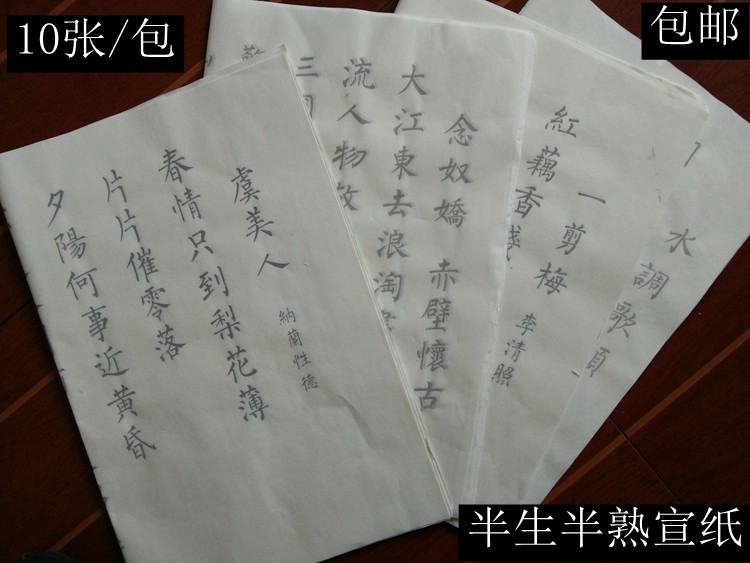 10张/包
包邮
虞美人
納蘭性德
春情只到梨花薄
片片催零落
夕陽何事近黄昏
念奴嬌 赤壁懷古
大江東去浪淘
流人物故
三
一剪梅
李清照
紅藕香殘
水調歌頭
半生半熟宣纸